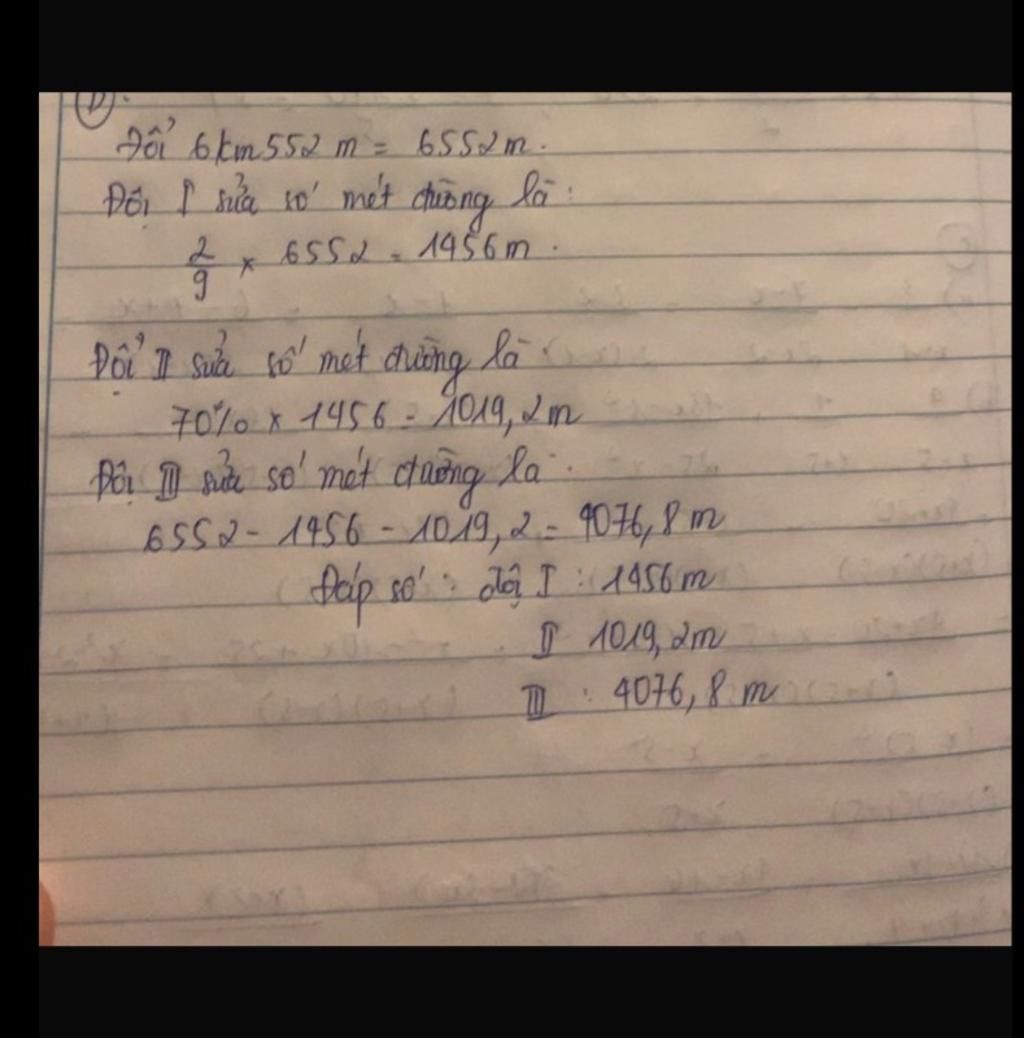 Đổi 6km552 m = 6552m.
Đội I sửa số mét đường là:
2/9 x 6552 = 1456m.
Đội II sửa số mét đường là:
70% x 1456 = 1019,2m
Đội III sửa số mét đường là:
6552 - 1456 - 1019,2 = 4076,8m
Đáp số: đội I : 1456m
II 1019,2m
III : 4076,8 m